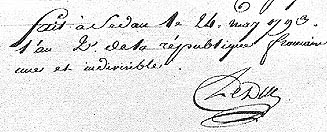 fait à Sedan le 24. may 1793.
l'an 2e de la république francaise
une et indivisible.
Leduc